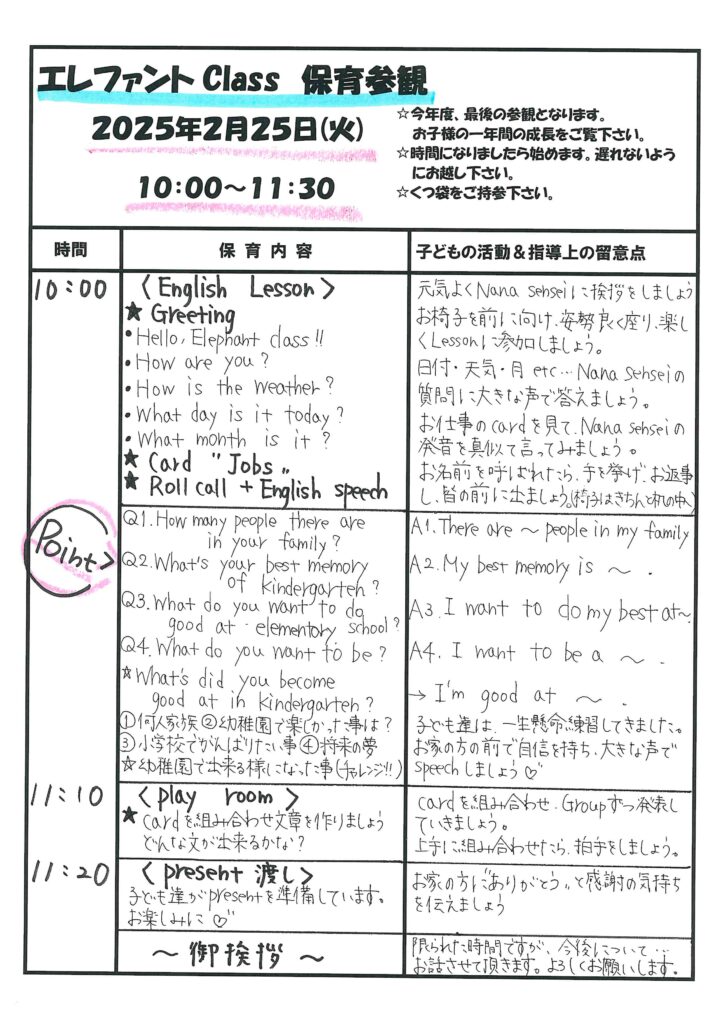 エレファント Class 保育参観
2025年2月25日(火)
10:00～11:30
☆今年度、最後の参観となります。
お子様の一年間の成長をご覧下さい。
☆時間になりましたら始めます。遅れないよう
にお越し下さい。
☆くつ袋をご持参下さい。
時間
保育内容
子どもの活動＆指導上の留意点
10:00
〈English Lesson〉
★ Greeting
• Hello, Elephant class!!
• How are you?
• How is the weather?
• What day is it today?
• What month is it?
★ Card "Jobs"
★ Roll call + English speech
元気よくNana senseiに挨拶をしましょう
お椅子を前に向け、姿勢良く座り、楽し
くLessonに参加しましょう。
日付・天気・月 etc… Nana senseiの
質問に大きな声で答えましょう。
お仕事のcardを見て、Nana senseiの
発音を真似て言ってみましょう。
お名前を呼ばれたら、手を挙げ、お返事
し、皆の前に出ましょう。(椅子はきちんと机の中へ)
Point>
Q1. How many people there are
in your family?
Q2. What's your best memory
of kindergarten?
Q3. What do you want to do
good at elementary school?
Q4. What do you want to be?
☆What's did you become
good at in kindergarten?
①何人家族 ②幼稚園で楽しかった事は?
③小学校でがんばりたい事 ④将来の夢
☆幼稚園で出来る様になった事(チャレンジ!!)
A1. There are ～ people in my family
A2. My best memory is ～ .
A3. I want to do my best at～.
A4. I want to be a ～ .
→ I'm good at ～ .
子ども達は、一生懸命練習してきました。
お家の方の前で自信を持ち、大きな声で
speechしましょう♡
11:10
〈play room〉
★ cardを組み合わせ文章を作りましょう
どんな文が出来るかな?
cardを組み合わせ、Groupずつ発表し
ていきましょう。
上手に組み合わせたら、拍手をしましょう。
11:20
〈present 渡し〉
子ども達がpresentを準備しています。
お楽しみに♡
お家の方に"ありがとう"と感謝の気持ち
を伝えましょう
～ 御挨拶 ～
限られた時間ですが、今後について…
お話させて頂きます。よろしくお願いします。